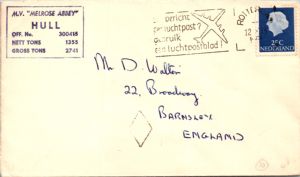 M.V. "MELROSE ABBEY"
HULL
OFF. No. 300415
NETT TONS 1355
GROSS TONS 2741
bericht
per luchtpost?
gebruik
een luchtpostblad!
NEDERLAND
Mr D Walton
22, Broadway
BARNSLEY
ENGLAND